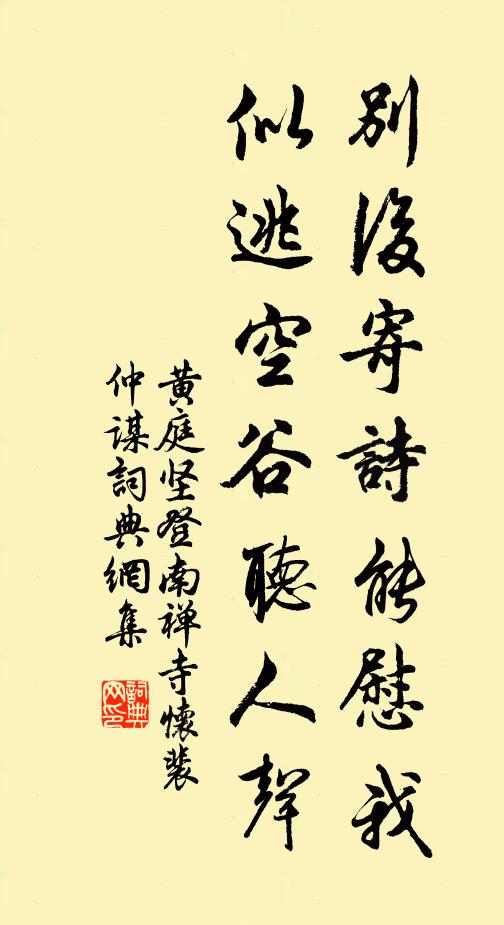 别後寄詩能慰我
似逃空谷聽人聲
黄庭坚登南禅寺懷裴
仲謀詞典網集
詞典
网印